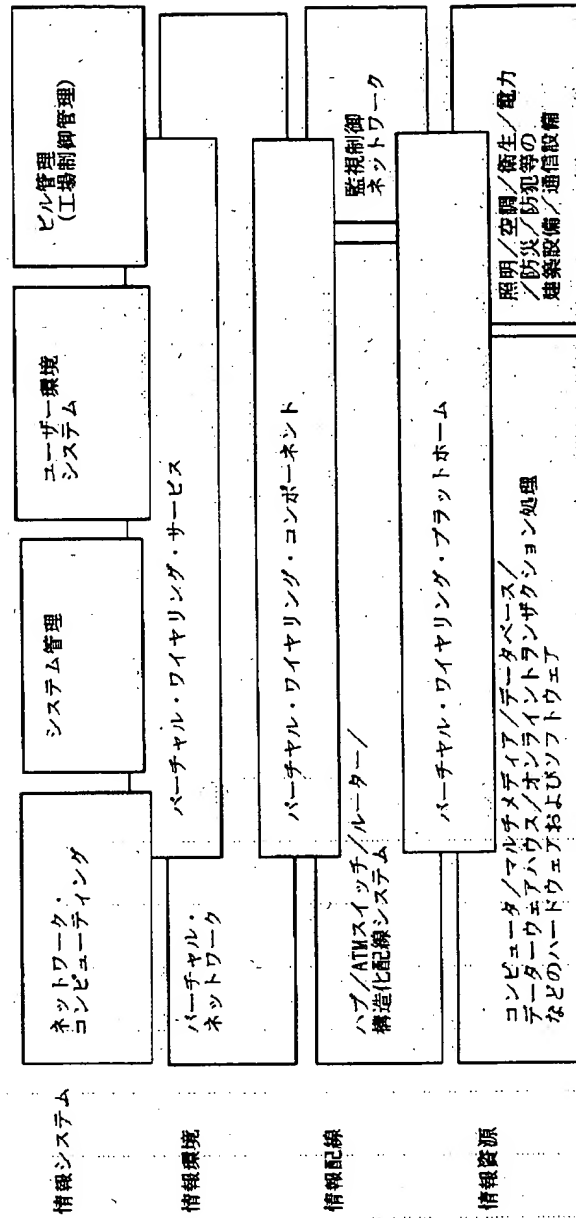 情報システム
ネットワーク・
コンピューティング
システム管理
ユーザー環境
システム
ビル管理
(工場制御管理)
バーチャル・ワイヤリング・サービス
情報環境
バーチャル・
ネットワーク
バーチャル・ワイヤリング・コンポーネント
情報配線
ハブ/ATMスイッチ/ルーター/
構造化配線システム
監視制御
ネットワーク
バーチャル・ワイヤリング・プラットホーム
情報資源
コンピュータ/マルチメディア/データベース/
データーウェアハウス/オンライントランザクション処理
などのハードウェアおよびソフトウェア
照明/空調/衛生/電力
/防災/防犯等の
建築設備/通信設備